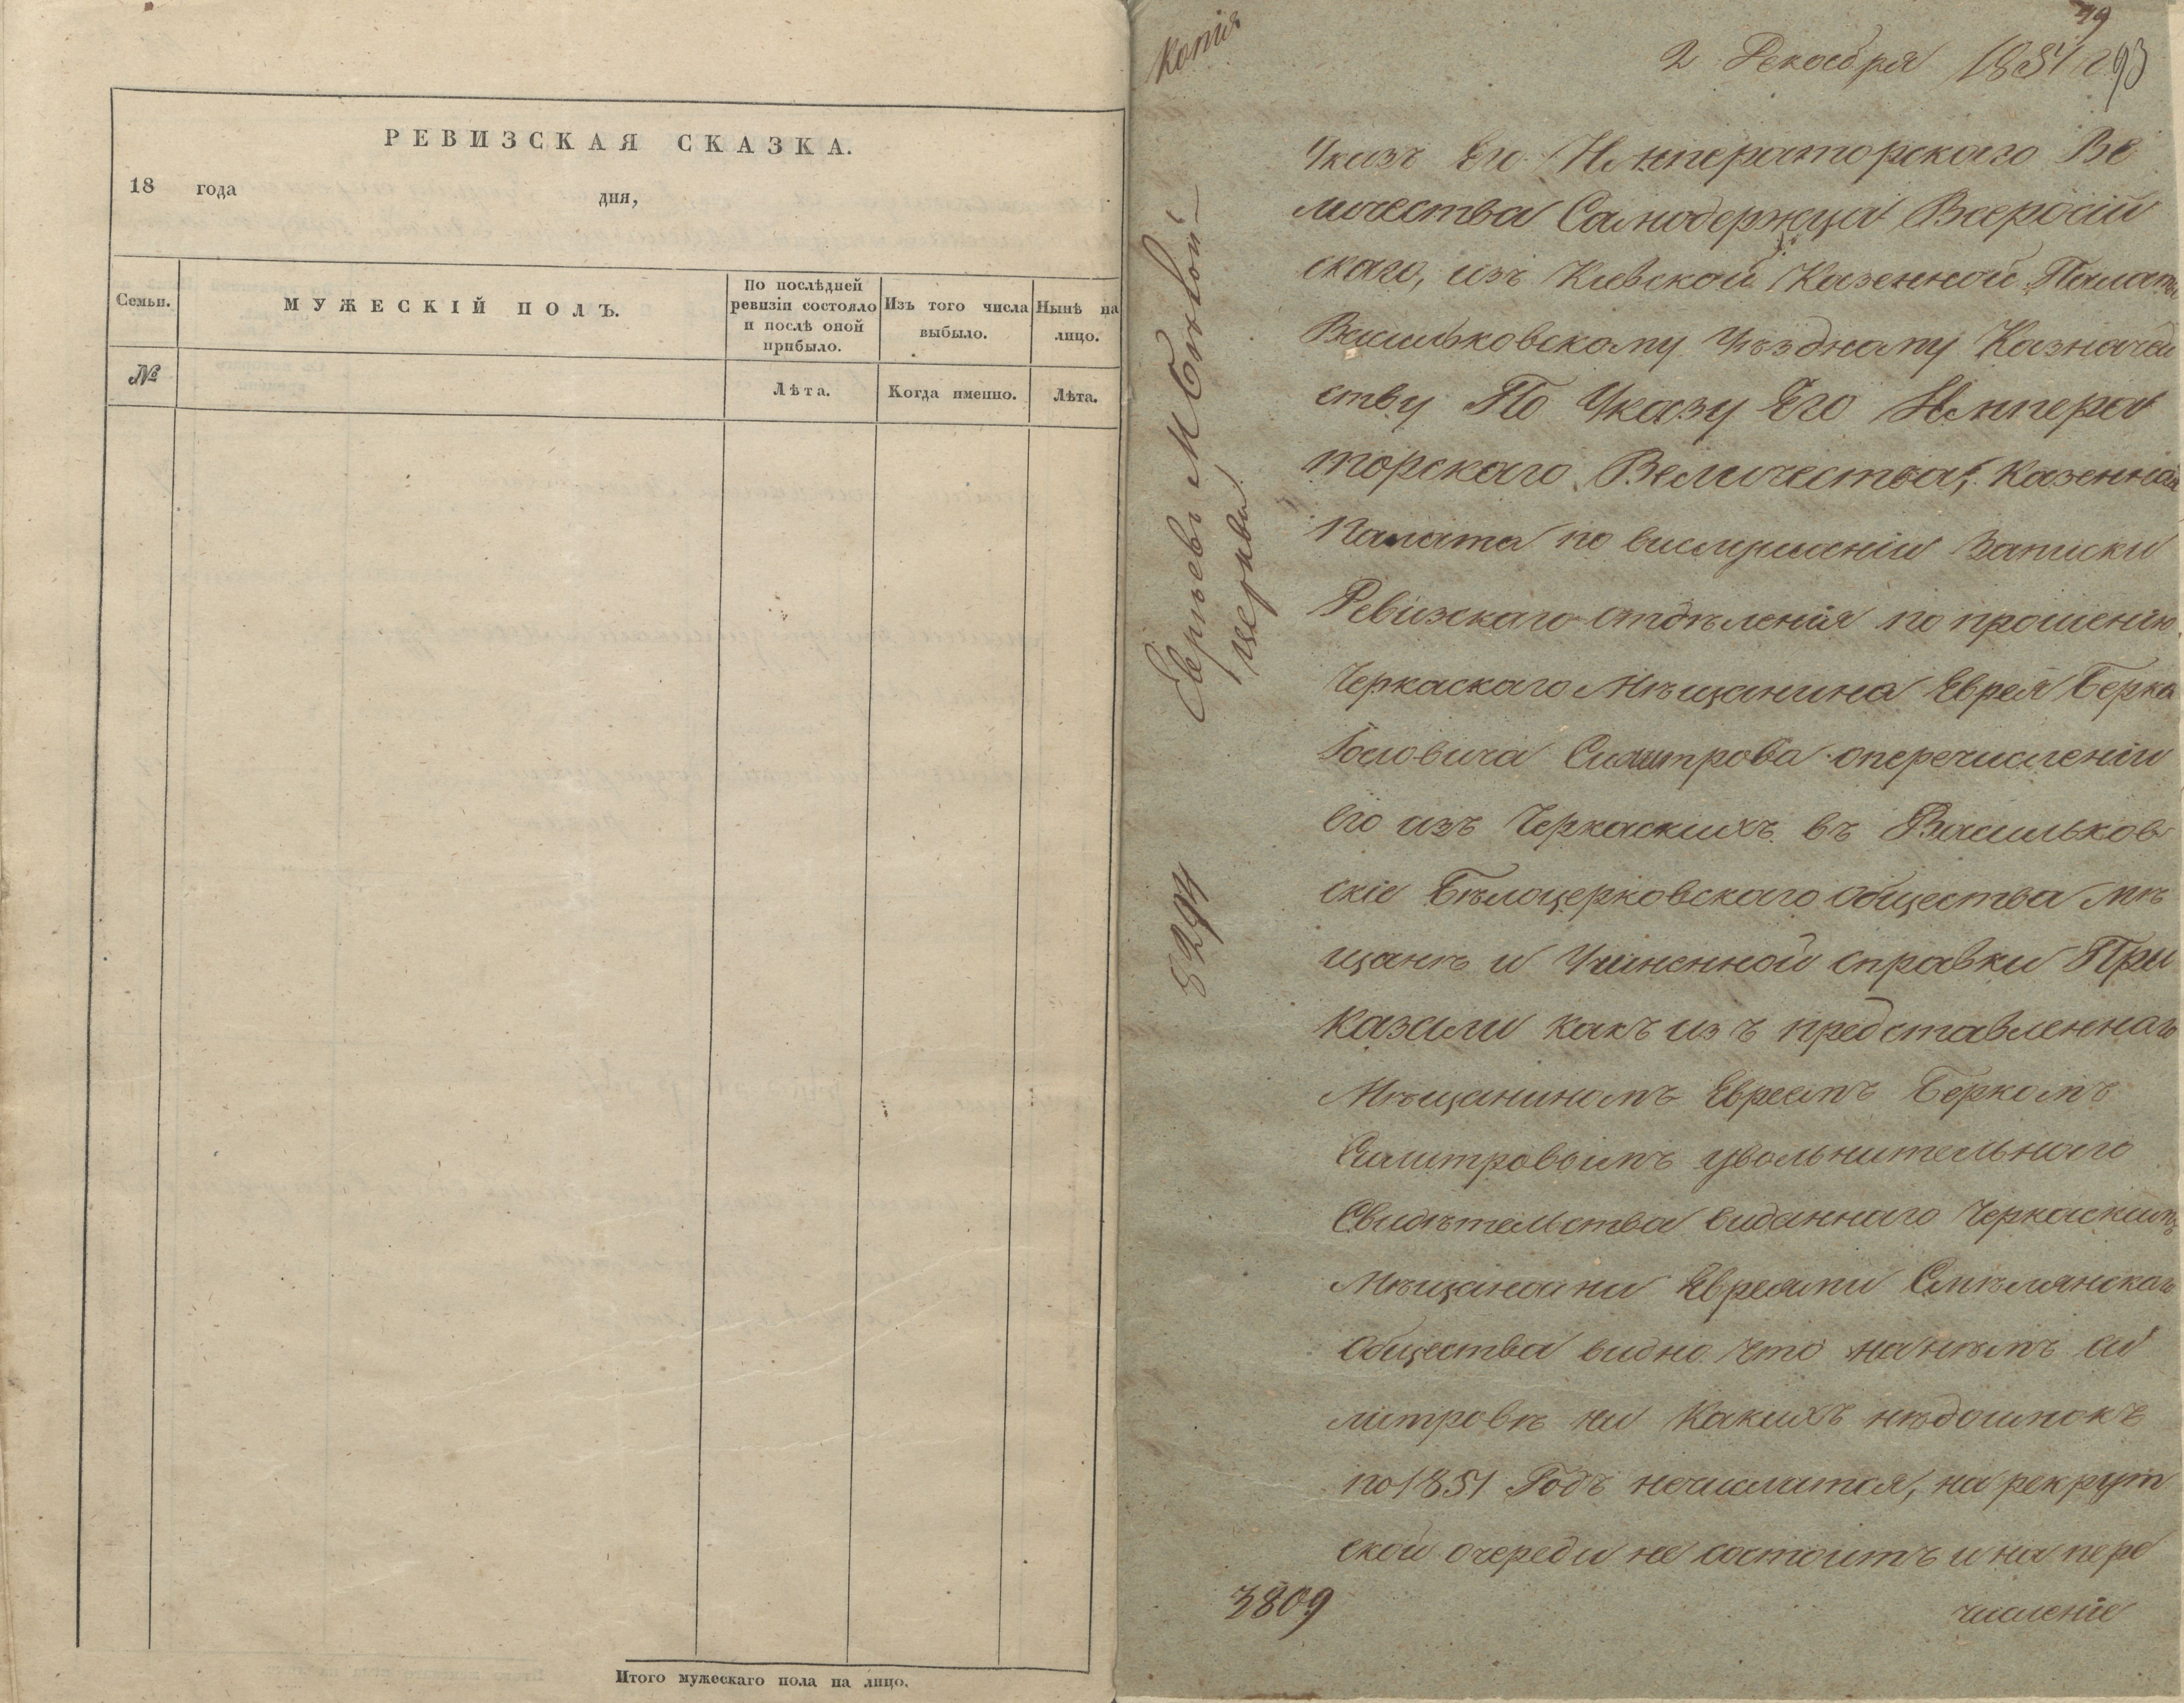 РЕВИЗСКАЯ СКАЗКА.
18 года дня,
Семьи.
МУЖЕСКІЙ ПОЛЪ.
По послѣдней
ревизіи состояло
и послѣ оной
прибыло.
Изъ того числа
выбыло.
Нынѣ на
лицо.
№
Лѣта.
Когда именно.
Лѣта.
Итого мужескаго пола на лицо.
Копія
79
2 Декабря 1851 г
93
Евреевъ М Бѣлой
церкви
8294
Указъ Его Императорскаго Ве
личества Самодержца Всеросій
скаго, изъ Киевской Казенной Палаты
Васильковскому Уѣздному Казначей
ству По Указу Его Импера
торскаго Величества, Казенная
Палата по выслушаніи Записки
Ревизскаго отдѣленія по прошенію
Черкаскаго Мѣщанина Еврея Берка
Іосіовича Силитрова оперечисленіи
его изъ Черкаскихъ въ Васильков
скіе Бѣлоцерковскаго общества мѣ
щанѣ и Учиненной справки При
казали какъ изъ представленнаго
Мѣщаниномъ Евреемъ Беркомъ
Силитровымъ увольнительнаго
Свидѣтельства виданнаго Черкаскимъ
Мѣщанами Евреями Смѣлянскаго
общества видно что нанѣмъ Си
литровѣ ни какихъ нѣдоимокъ
по 1851 Годъ нечислится, на рекрут
ской очереди не состоитъ и на пере
численіе
3809